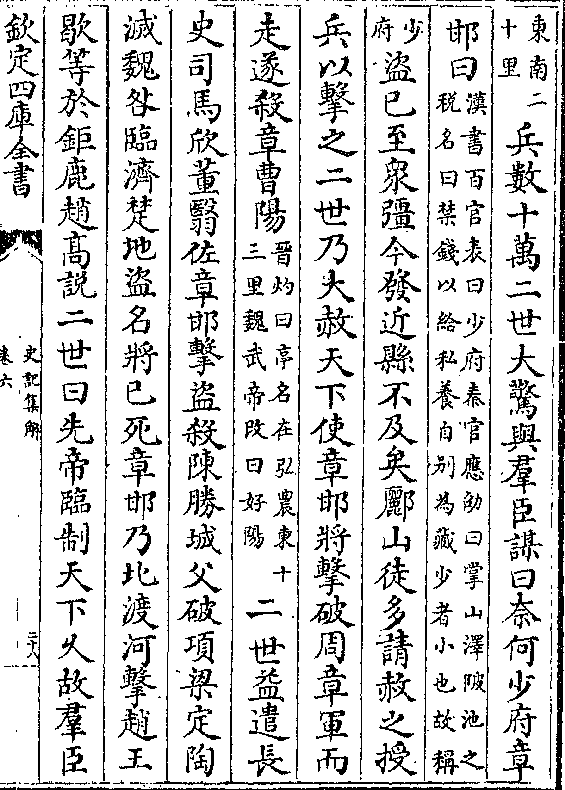 東南二十里兵數十萬二世大驚與羣臣謀曰奈何少府章
邯曰漢書百官表曰少府秦官應劭曰掌山澤陂池之税名曰禁錢以給私養自别為藏少者小也故稱
少府盗已至衆彊今發近縣不及矣酈山徒多請赦之授
兵以擊之二世乃大赦天下使章邯將擊破周章軍而
走遂殺章曹陽晉灼曰亭名在弘農東十三里魏武帝改曰好陽二世益遣長
史司馬欣董翳佐章邯擊盗殺陳勝城父破項梁定陶
滅魏咎臨濟楚地盗名將已死章邯乃北渡河擊趙王
歇等於鉅鹿趙高説二世曰先帝臨制天下久故羣臣
欽定四庫全書
史記集解
卷六
二十八